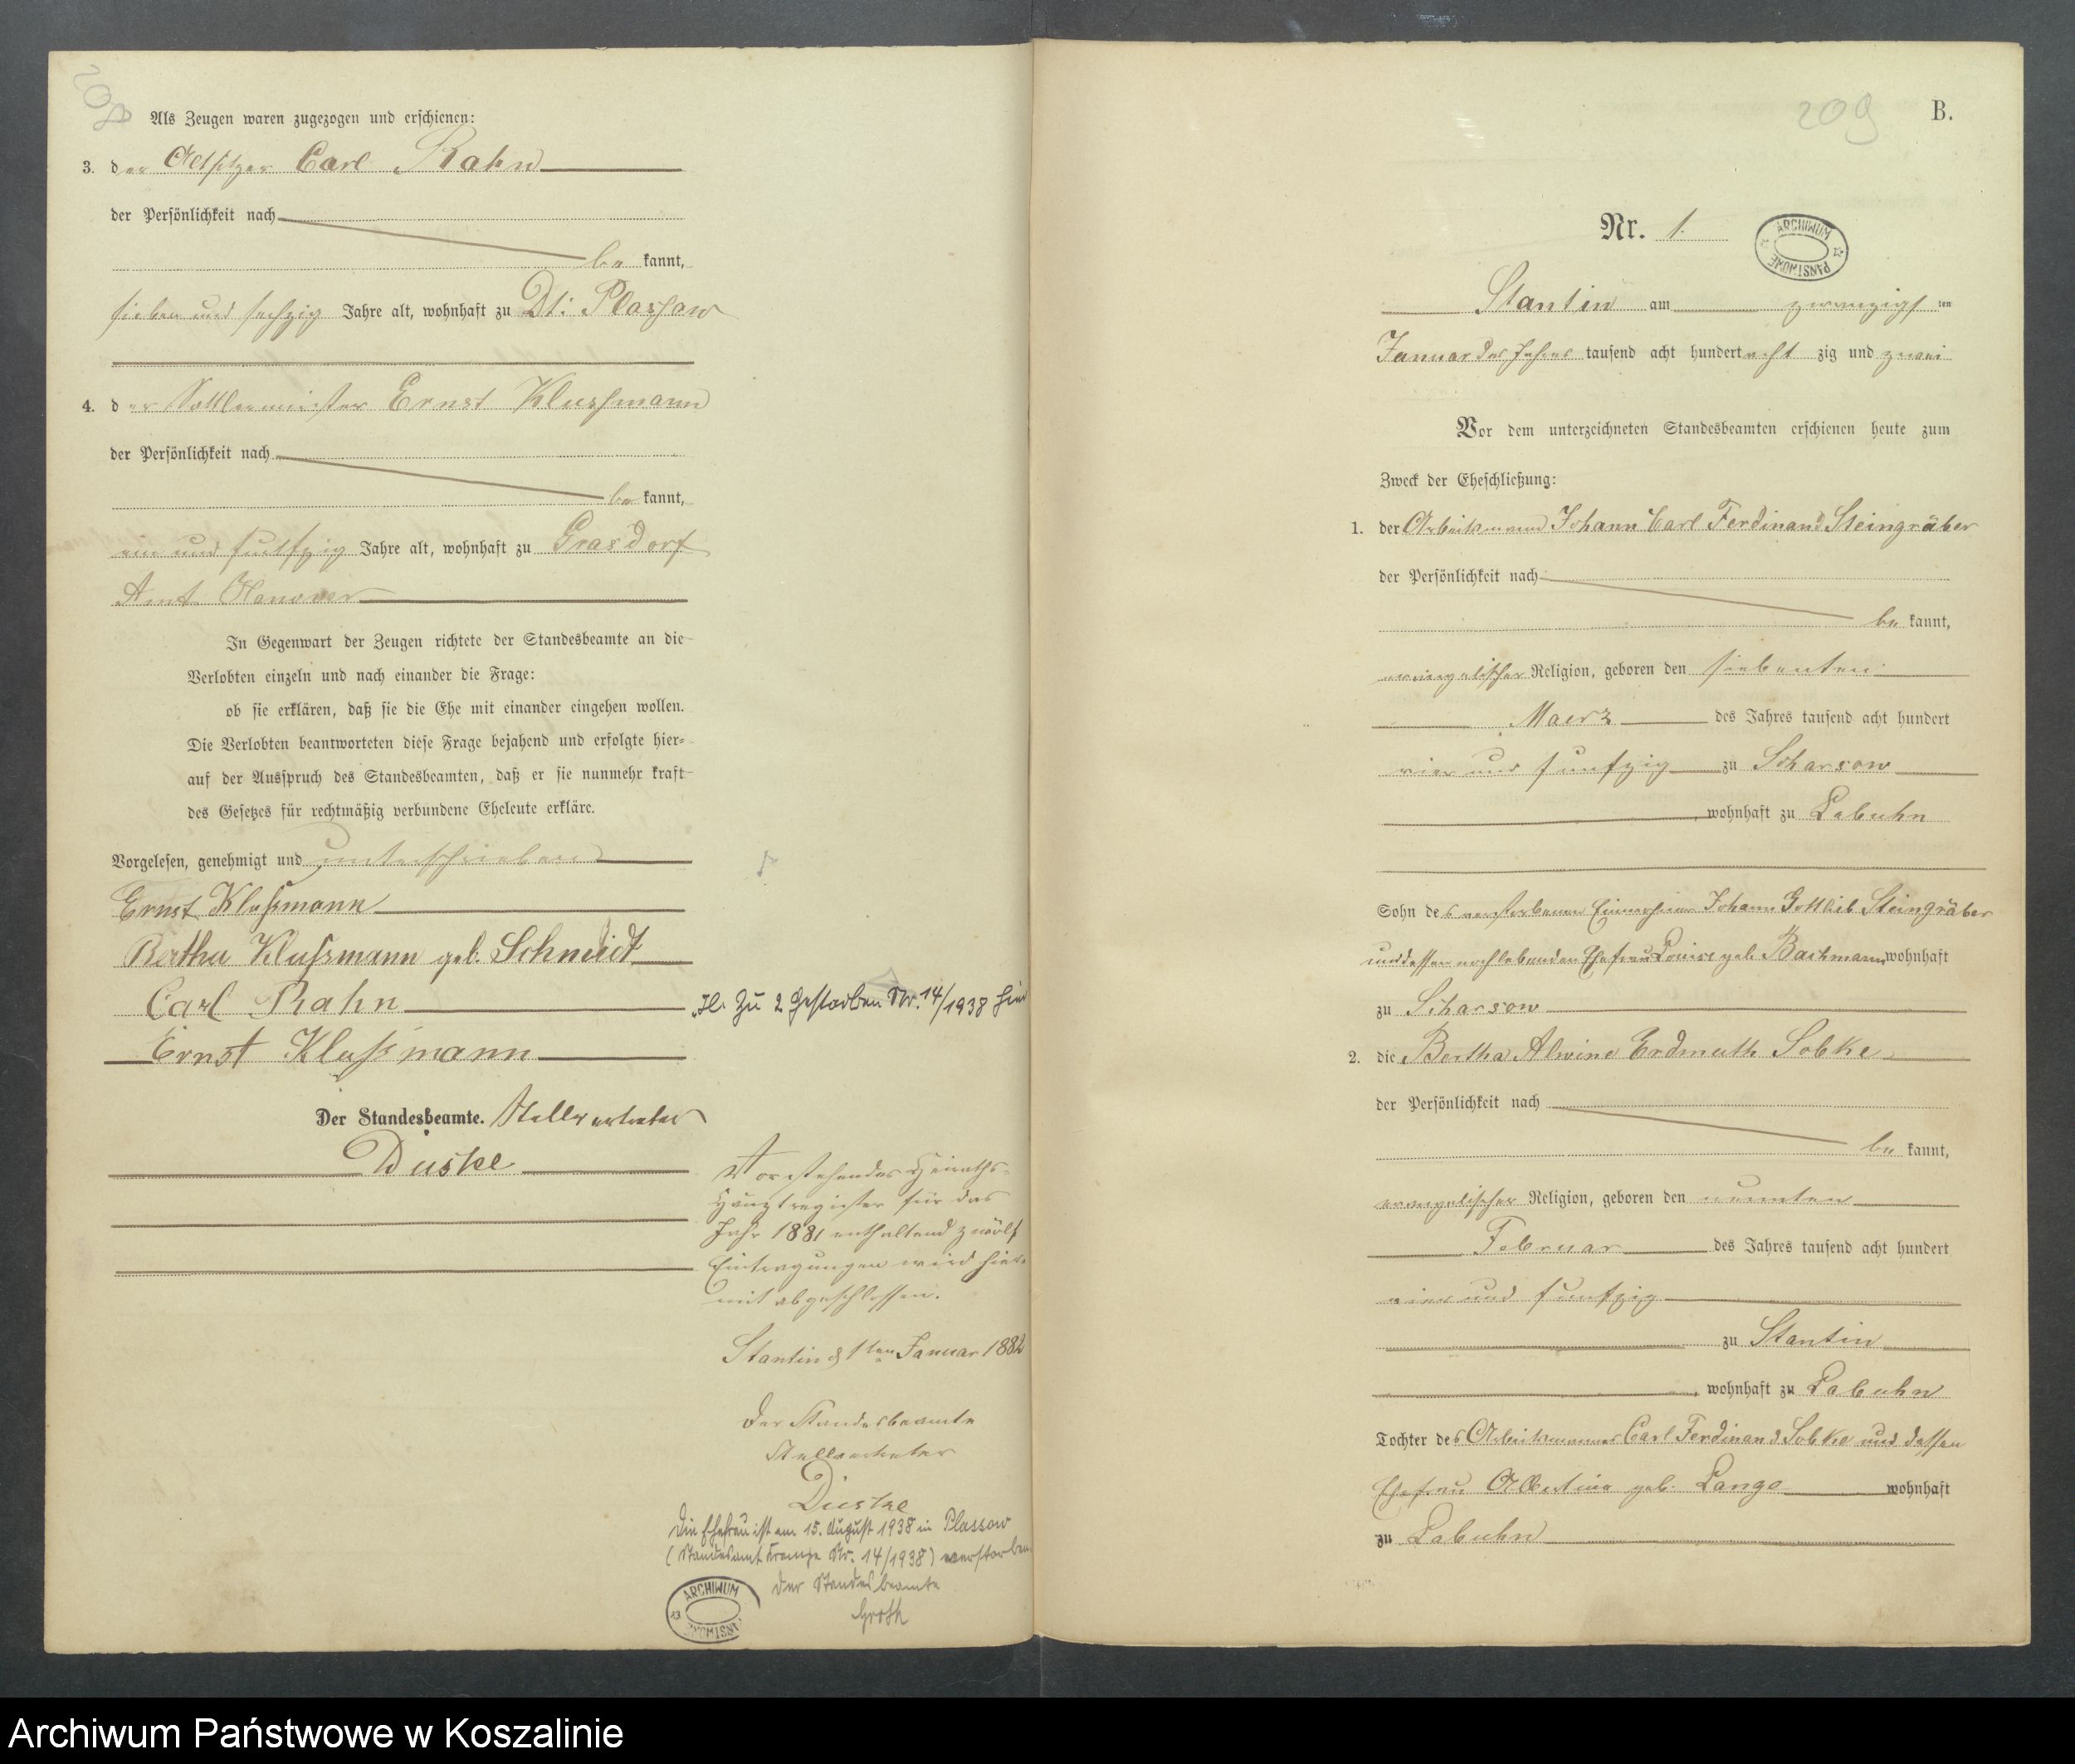 208
Als Zeugen waren zugezogen und erschienen:
3. der Altsitzer Carl Rahn
der Persönlichkeit nach
be kannt,
sieben und sechzig Jahre alt, wohnhaft zu Dt: Plassow
4. der Sattlermeister Ernst Klussmann
der Persönlichkeit nach
be kannt,
ein und funfzig Jahre alt, wohnhaft zu Grasdorf
Amt Hanover
In Gegenwart der Zeugen richtete der Standesbeamte an die
Verlobten einzeln und nach einander die Frage:
ob sie erklären, daß sie die Ehe mit einander eingehen wollen.
Die Verlobten beantworteten diese Frage bejahend und erfolgte hier-
auf der Ausspruch des Standesbeamten, daß er sie nunmehr kraft
des Gesetzes für rechtmäßig verbundene Eheleute erkläre.
Vorgelesen, genehmigt und unterschrieben
Ernst Klußmann
Bertha Klußmann geb. Schmidt
Carl Rahn
Ernst Klußmann
Der Standesbeamte. Stellvertreter
Duske
zu 2 Gestorben Nr. 14/1938 hier
Vorstehendes Heiraths-
Hauptregister für das
Jahr 1881 enthaltend zwölf
Eintragungen wird hier-
mit abgeschlossen.
Stantin d 1ten Januar 1882
Der Standesbeamte
Stellvertreter
Duske
Die Ehefrau ist am 15. August 1938 in Plassow
(Standesamt Nr. 14/1938) verstorben
Der Standesbeamte
Groth
ARCHIWUM
209
B.
Nr. 1.
ARCHIWUM PAŃSTWOWE
Stantin am zwanzigsten
Januar des Jahres tausend acht hundert acht zig und zwei
Vor dem unterzeichneten Standesbeamten erschienen heute zum
Zweck der Eheschließung:
1. der Arbeitsmann Johann Carl Ferdinand Steingräber
der Persönlichkeit nach
be kannt,
evangelischer Religion, geboren den siebenten
Maerz des Jahres tausend acht hundert
vier und funfzig zu Scharsow
, wohnhaft zu Labuhn
Sohn des verstorbenen Einwohner Johann Gottlieb Steingräber
und dessen noch lebenden Ehefrau Louise geb. Bachmann wohnhaft
zu Scharsow
2. die Bertha Alwine Erdmuth Sobke
der Persönlichkeit nach
be kannt,
evangelischer Religion, geboren den neunten
Februar des Jahres tausend acht hundert
vier und funfzig
zu Stantin
, wohnhaft zu Labuhn
Tochter des Arbeitsmannes Carl Ferdinand Sobke und dessen
Ehefrau Albertine geb. Lange wohnhaft
zu Labuhn
Archiwum Państwowe w Koszalinie